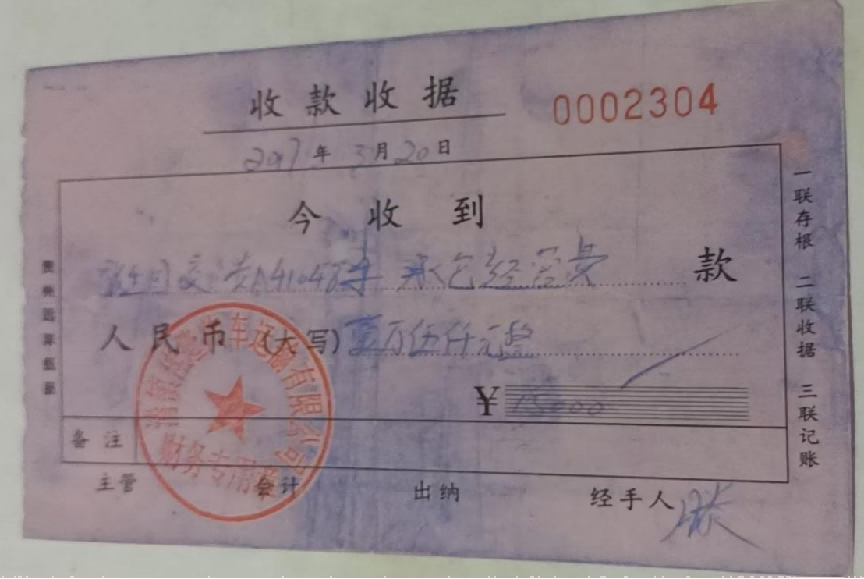 收款收据
0002304
2017年3月20日
今收到
承包经营费 款
人民币(大写)壹万伍仟元整
¥15000
备注
主管 会计 出纳 经手人 张
一联存根 二联收据 三联记账
汽车运输有限公司
财务专用章